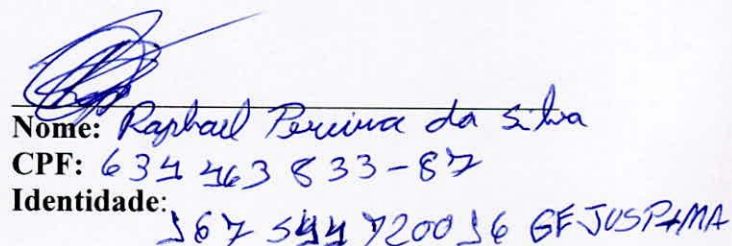 Nome: Raphael Pereira da Silva
CPF: 634 463 833-87
Identidade:
GEJUSP+MA